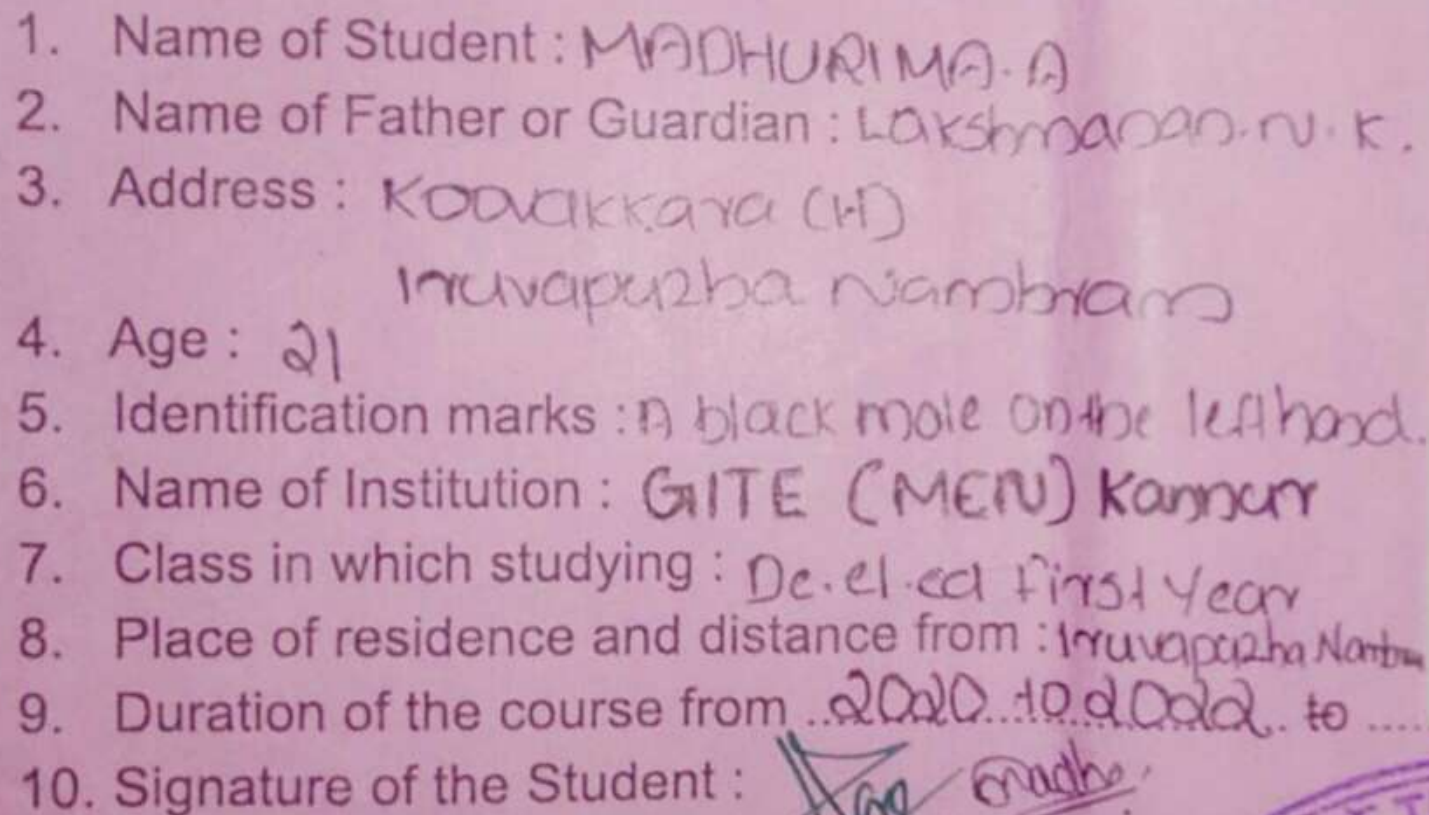 1. Name of Student : MADHURIMA. A
2. Name of Father or Guardian : Lakshmanan. N. K.
3. Address : Koovakkara (H)
Iruvapuzha Nambram
4. Age : 21
5. Identification marks : A black mole on the left hand.
6. Name of Institution : GITE (MEN) Kannur
7. Class in which studying : De.el.ed first Year
8. Place of residence and distance from : Iruvapuzha Nambram
9. Duration of the course from ..2020...to.2022.. to ....
10. Signature of the Student : Madhu